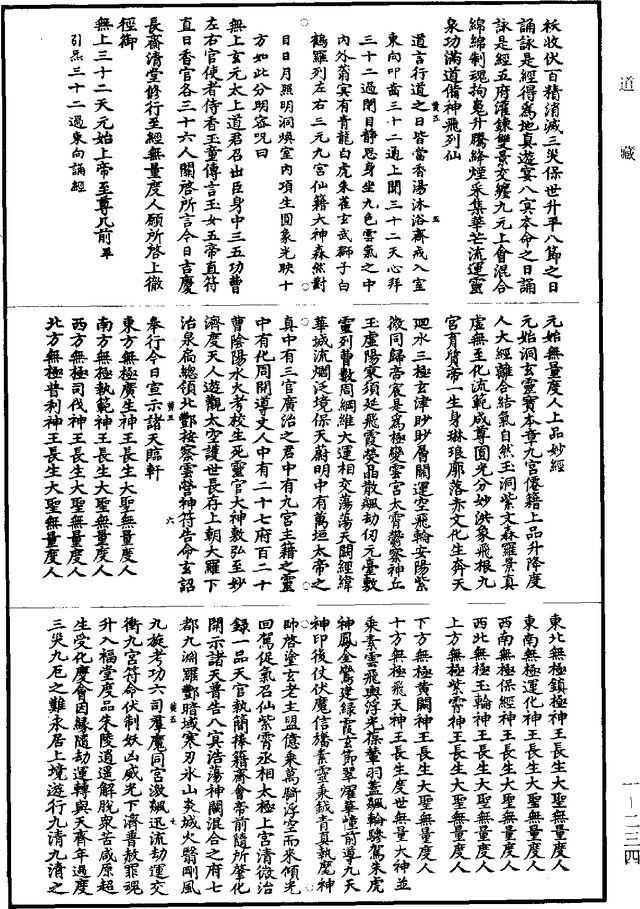 道藏
祅收伏百精消滅三災保世升平八節之日
誦詠是經得為地真遊宴八冥本命之日誦
詠是經五府灌鍊雙景交纏九元上會混合
綿綿制魂拘魄升騰絳煙采集華芒流運靈
泉功滿道備神飛列仙
道言行道之日皆當香湯沐浴齋戒入室
東向叩齒三十二通上聞三十二天心拜
三十二過閉目靜思身坐九色雲氣之中
內外蓊冥有青龍白虎朱雀玄武獅子白
鶴羅列左右三元九宮仙籍大神森然對
目日月照明洞煥室內項生圓象光映十
方如此分明密呪曰
無上玄元太上道君召出臣身中三五功曹
左右官使者侍香玉童傳言玉女五帝直符
直日香官各三十六人關啓所言今日吉慶
長齋清堂修行至經無量度人願所啓上徹
徑御
無上三十二天元始上帝至尊几前
引炁三十二過東向誦經
元始無量度人上品妙經
元始洞玄靈寶本章九宮僊籍上品升降度
人大經離合結氣自然玉洞紫文森羅景真
虛無至化流範咸尊圓光分妙洪象飛根九
宮育質帝一生身琳琅廓落赤文化生奔天
迴水三極玄津眇眇層關運空飛輪安陽紫
微同歸帝宸是為極變雲宮太霄鬱察神丘
玉虛陽寒須延飛霞熒晶散飆劫仞元臺敷
靈列曹數周綱維大運相交蕩蕩天關經緯
華城流爛泛境保天蔚明中有萬垣太帝之
真中有三官廣治之君中有九宮主籍之靈
中有化周開導丈人中有二十七府百二十
曹陰陽水火考校生死靈官大神敷弘至妙
濟度天人遊觀太空護世長存上朝大羅下
治泉扃總領北酆按察雲營神符告命玄詔
奉行今日宣示諸天臨軒
東方無極廣生神王長生大聖無量度人
南方無極執範神王長生大聖無量度人
西方無極司伐神王長生大聖無量度人
北方無極普利神王長生大聖無量度人
東北無極鎮極神王長生大聖無量度人
東南無極運化神王長生大聖無量度人
西南無極保經神王長生大聖無量度人
西北無極玉輪神王長生大聖無量度人
上方無極紫霄神王長生大聖無量度人
下方無極黃關神王長生大聖無量度人
十方無極飛天神王長生度世無量大神並
乘素雲飛輿浮光葆輦羽蓋飆輪驂駕朱虎
神鳳金鸞建綠霞玄節翠燿華幢前導九天
神印後仗伏魔信旛素靈秉鉞青真執魔神
師啓塗玄老主盟億乘萬騎浮空而來傾光
回駕促氣召仙紫霄丞相太極上宮清微治
錄一品天官執簡捧籍齋會帝前隨所肇化
開示諸天普告八冥浩蕩神關混合之府七
都九淵羅酆暗域寒刃氷山炎城火翳剛風
九旋考功六司羣魔同宮激飆迅流劫運交
衝九宮符命伏制妖凶威光下濟普赦罪魂
升入福堂度品朱陵逍遥解脫衆苦咸原超
生受化慶會因緣隨劫運轉與天齊年過度
三災九厄之難永居上境遊行九清九清之
一—二三四